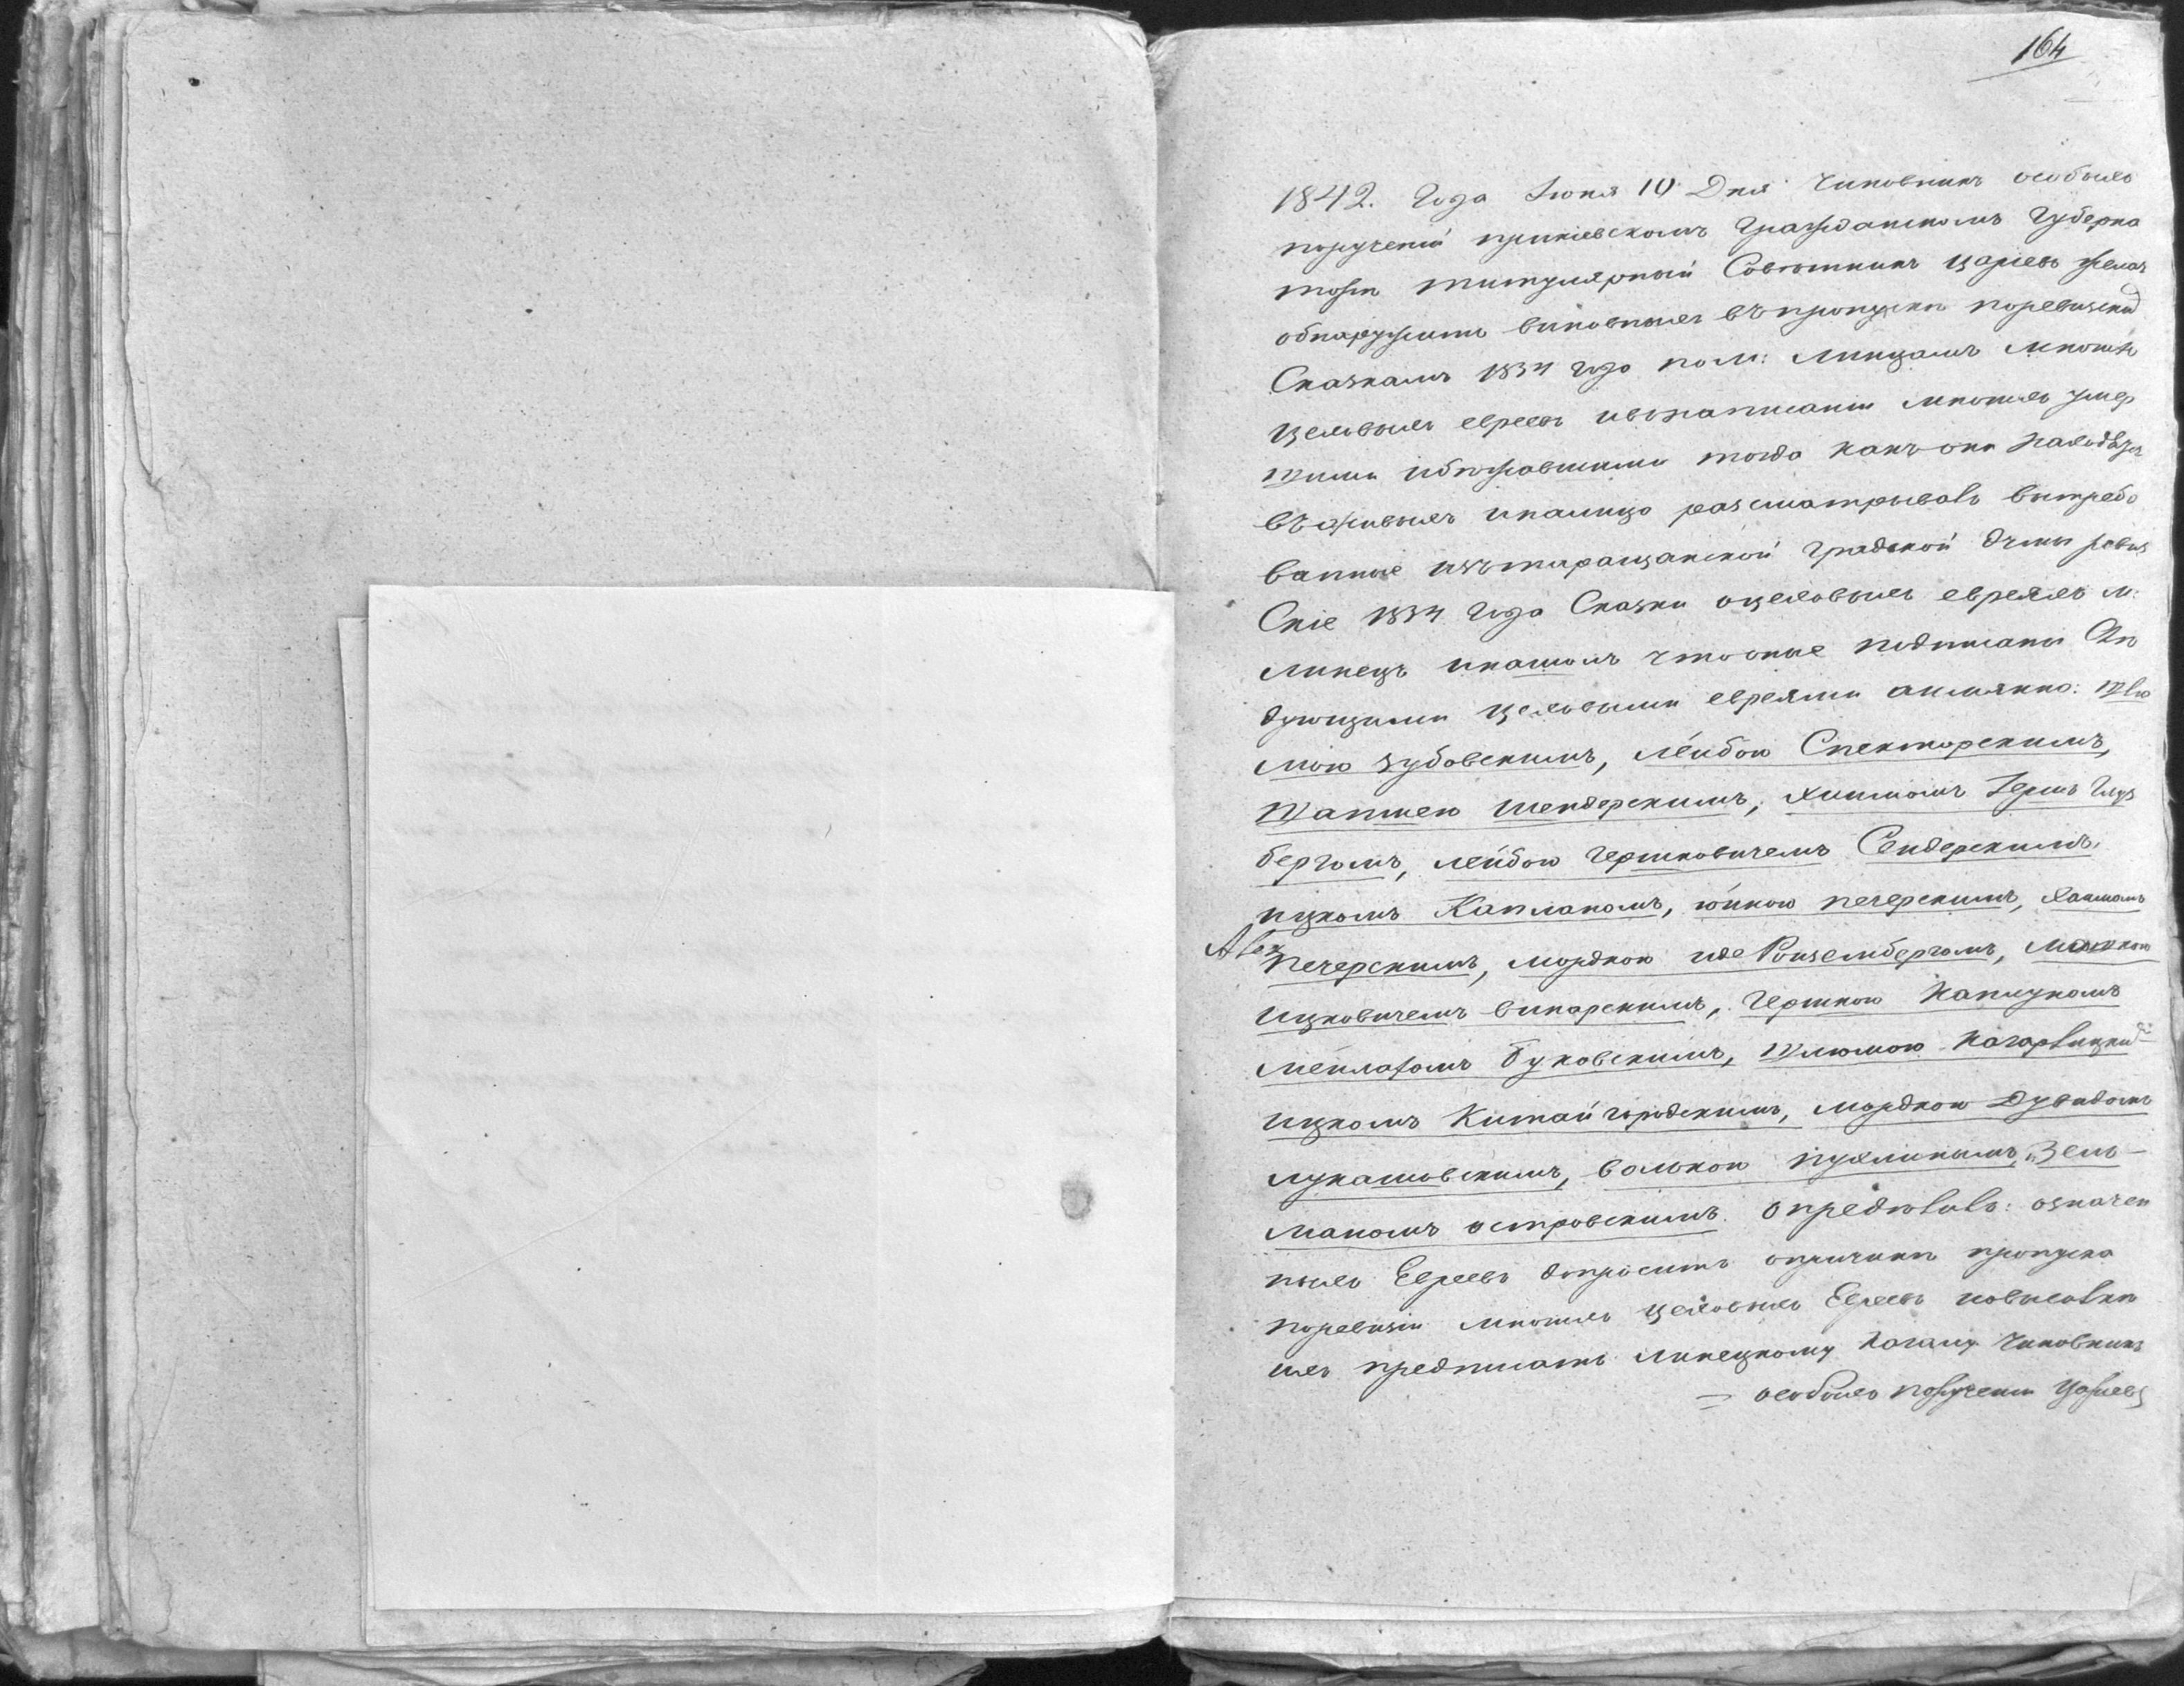 164
1842. Года Июня 10 Дня Чиновникъ особыхъ
порученій прикіевскомъ Гражданскомъ Губерна
торѣ титулярный Совѣтникъ Царевъ желая
обнаружить виновныхъ въпропускѣ поревизскимъ
Сказкамъ 1834 года по м: Линцамъ многихъ
цеховыхъ евреевъ ивънаписаніи многихъ умер
шими ибѣжавшими тогда какъ они находятся
въживыхъ иналицо разсматривалъ вытребо
ванные изътаращанской Градской Думы ревиз
Скіе 1834 Года Сказки оцеховыхъ евреяхъ м:
Линецъ инашолъ чтооные подписаны Слѣ
дующими цеховыми евреями аимянно:
зубовскимъ, Лейбою Спекторскимъ,
Шапшею Шендерскимъ,
бергомъ, Лейбою Гершковичемъ Сендерскимъ,
Ицкомъ Капланомъ, печерскимъ, Хаимомъ
Печерскимъ, Мордкою Ронзембергомъ,
Ицковичемъ винарскимъ, Гершкою
буковскимъ, Шлиомою
Ицкомъ Китайгородскимъ, Мордкою Дувидомъ
Лукашовскимъ, Волькою Зель
маномъ островскимъ. Опредѣлилъ: означен
ныхъ Евреевъ допросить опричинѣ пропуска
поревизіи многихъ цеховыхъ Евреевъ ивысылки
ихъ предписать Линецкому Кагалу Чиновникъ
особыхъ порученій Царевъ